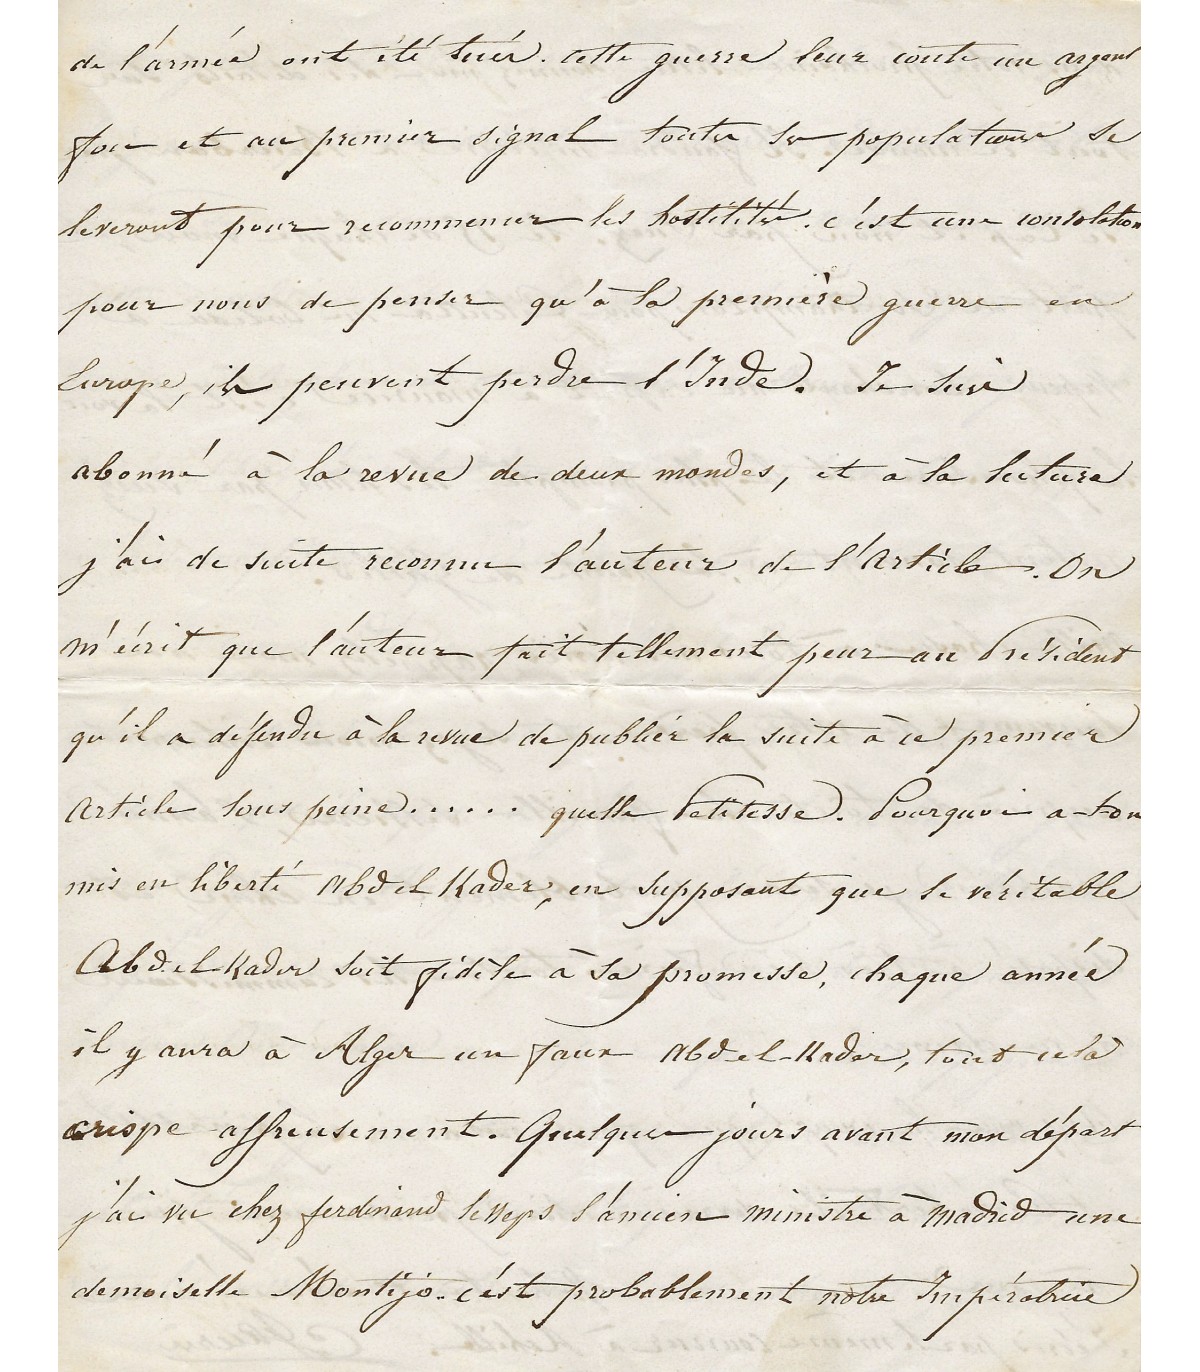 de l'armée ont été tués. cette guerre leur coute un argent
fou et au premier signal toutes les populations se
leveront pour recommencer les hostilités. c'est une consolation
pour nous de penser qu'à la première guerre en
Europe, ils peuvent perdre l'Inde. Je suis
abonné à la revue de deux mondes, et à la lecture
j'ai de suite reconnu l'auteur de l'article. On
m'écrit que l'auteur fait tellement peur au Président
qu'il a défendu à la revue de publier la suite à ce premier
article sous peine...... quelle Petitesse. Pourquoi a-t-on
mis en liberté Abd el Kader, en supposant que le véritable
Abd-el-Kader soit fidèle à sa promesse, chaque année
il y aura à Alger un faux Abd-el-Kader, tout celà
crispe affreusement. Quelques jours avant mon départ
j'ai vu chez ferdinand lesseps l'ancien ministre à Madrid une
demoiselle Montijo. c'est probablement notre Impératrice